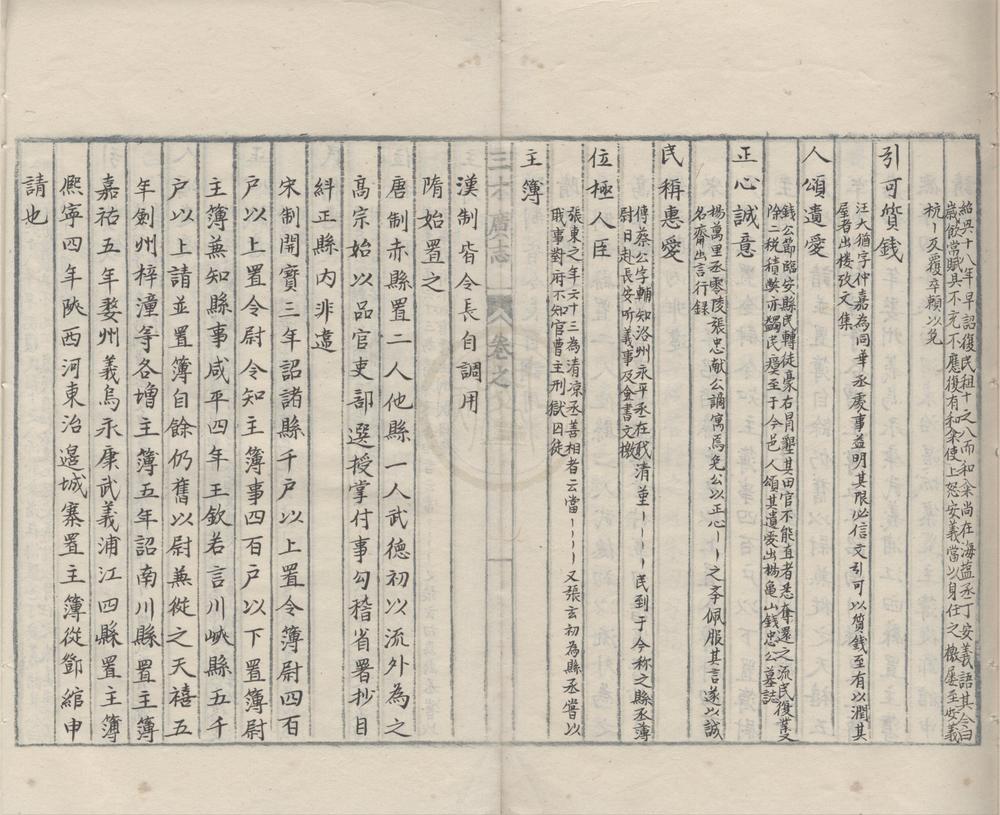 紹興十八年旱詔復民租十之八而和籴尚在海盐丞丁安義語其令曰
歳飲常賦具不充不應復有和籴使上怒安義當以身任之檄屡至安義
杭丨反覆卒頼以免
引可貨錢
汪大猶字仲嘉為同華丞處事益明其限必信文引可以質錢至有以潤其
屋者出楼攻文集
人頌遺愛
錢公節臨安縣民轉徒豪右冐墾其田官不能直者悉奪還之流民復業又
除二税積弊亦蠲民瘞至于今邑人頌其遺愛出楊龜山錢忠公墓誌
正心誠意
楊萬里丞零陵張忠献公謫寓焉免公以正心丨丨之李佩服其言遂以誠
名齋出言行録
民稱惠愛
傳蔡公字輔知洛州永平丞在我清堇丨丨丨民到于今称之縣丞薄
尉日赴長安听義事及佥書文檄
位極人臣
張東之年六十三為清凉丞善相者云當丨丨丨丨又張玄初為縣丞嘗以
戝事對府不知官曹主刑獄囚徒
主簿
漢制皆令長自調用
隋始置之
唐制赤縣置二人他縣一人武德初以流外為之
髙宗始以品官吏部選授掌付事勾稽省署抄目
紏正縣内非違
宋制開寳三年詔諸縣千户以上置令簿尉四百
户以上置令尉令知主簿事四百户以下置簿尉
主簿蕪知縣事咸平四年王欽若言川峽縣五千
户以上請並置簿自餘仍舊以尉蕪從之天禧五
年劍州梓潼等各增主簿五年詔南川縣置主簿
嘉祐五年婺州義烏永康武義浦江四縣置主簿
熈寧四年陜西河東治邉城寨置主簿從鄧綰申
請也
三才廣志
卷之